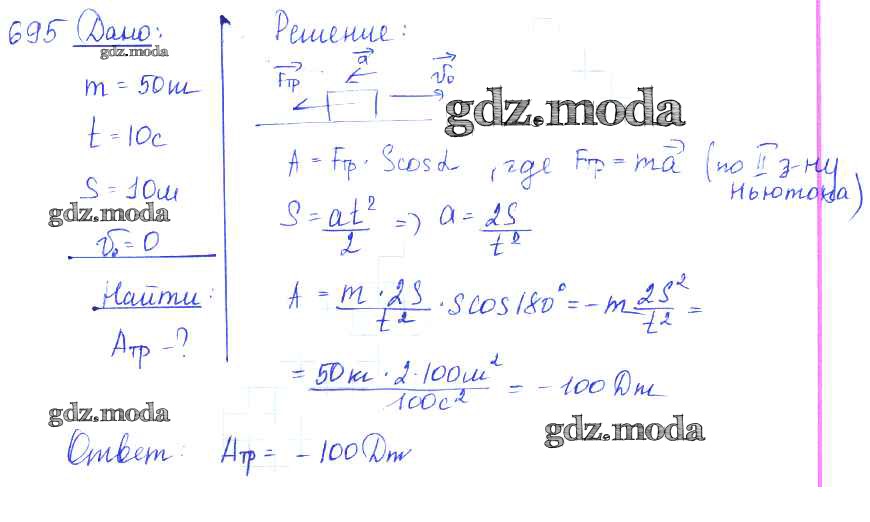 695 Дано:
gdz.moda
m = 50 кг
t = 10с
S = 10м
gdz.moda
v₀ = 0
Найти:
Aтр - ?
Решение:
Fтр a v₀
gdz.moda
A = Fтр · S cos α, где Fтр = ma (по II з-ну
Ньютона)
S = at²/2 => a = 2S/t²
A = m · 2S/t² · S cos 180° = - m 2S²/t² =
= 50кг · 2 · 100м²/100с² = - 100 Дж
gdz.moda
gdz.moda
Ответ: Aтр = - 100 Дж